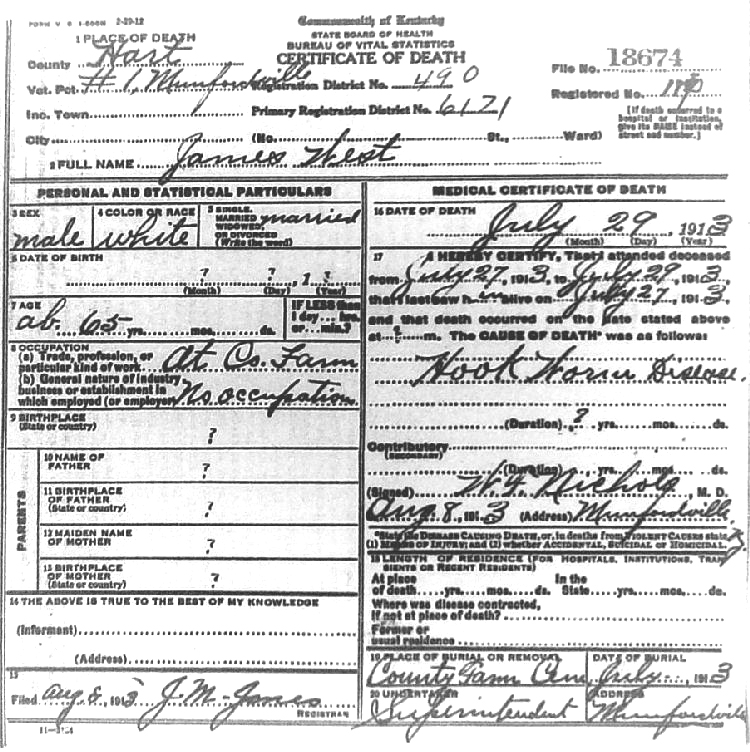 FORM V. S. 1-500M 2-29-12
Commonwealth of Kentucky
STATE BOARD OF HEALTH
BUREAU OF VITAL STATISTICS
CERTIFICATE OF DEATH
1 PLACE OF DEATH
County Hart
Vot. Pct. #1, Munfordville Registration District No. 490
File No. 18674
Inc. Town Primary Registration District No. 6171
Registered No.
(If death occurred in a hospital or institution, give its NAME instead of street and number.)
City (No. St., Ward)
2 FULL NAME James West
PERSONAL AND STATISTICAL PARTICULARS
3 SEX male
4 COLOR OR RACE white
5 SINGLE, MARRIED, WIDOWED, OR DIVORCED (Write the word) married
6 DATE OF BIRTH
? ? 1 ?
(Month) (Day) (Year)
7 AGE
ab. 65 yrs. mos. ds.
IF LESS than 1 day... hrs. or... min.?
8 OCCUPATION
(a) Trade, profession, or particular kind of work At Co. Farm
(b) General nature of industry business or establishment in which employed (or employer) No occupation
9 BIRTHPLACE
(State or country) ?
PARENTS
10 NAME OF FATHER ?
11 BIRTHPLACE OF FATHER (State or country) ?
12 MAIDEN NAME OF MOTHER ?
13 BIRTHPLACE OF MOTHER (State or country) ?
14 THE ABOVE IS TRUE TO THE BEST OF MY KNOWLEDGE
(Informant)
(Address)
15
Filed Aug 8, 1913 J. M. James
REGISTRAR
11-3154
MEDICAL CERTIFICATE OF DEATH
16 DATE OF DEATH
July 29, 1913
(Month) (Day) (Year)
17 I HEREBY CERTIFY, That I attended deceased
from July 27, 1913, to July 29, 1913,
that I last saw him alive on July 27, 1913,
and that death occurred on the date stated above
at ? m. The CAUSE OF DEATH* was as follows:
Hook Worm Disease.
(Duration) ? yrs. mos. ds.
Contributory
(SECONDARY)
(Duration) yrs. mos. ds.
(Signed) Nichols, M. D.
Aug 8, 1913 (Address) Munfordville
*State the DISEASE CAUSING DEATH, or, in deaths from VIOLENT CAUSES state
(1) MEANS OF INJURY; and (2) whether ACCIDENTAL, SUICIDAL or HOMICIDAL.
18 LENGTH OF RESIDENCE (FOR HOSPITALS, INSTITUTIONS, TRANSIENTS OR RECENT RESIDENTS)
At place of death yrs. mos. ds. In the State yrs. mos. ds.
Where was disease contracted, If not at place of death?
Former or usual residence
19 PLACE OF BURIAL OR REMOVAL
County Farm Cem
DATE OF BURIAL
July, 1913
20 UNDERTAKER
Superintendent
ADDRESS
Munfordville